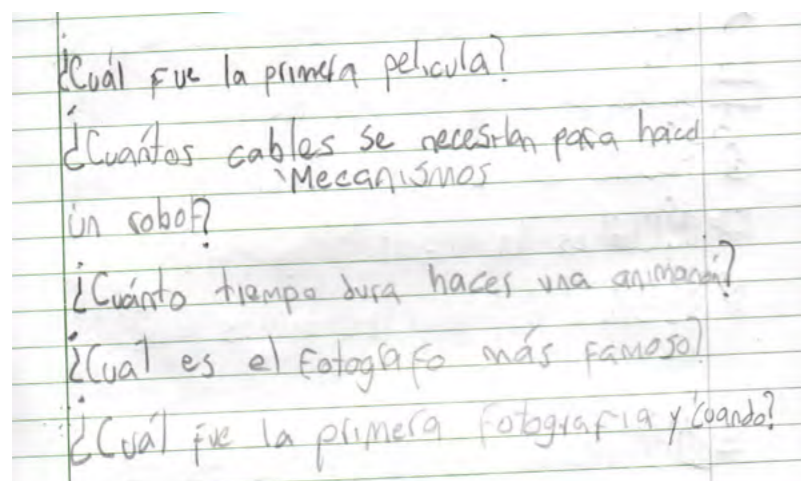 ¿Cuál fue la primera película?
¿Cuántos cables se necesitan para hacer
Mecanismos
un robot?
¿Cuánto tiempo dura hacer una animación?
¿Cual es el fotógrafo más famoso?
¿Cuál fue la primera fotografía y cuando?